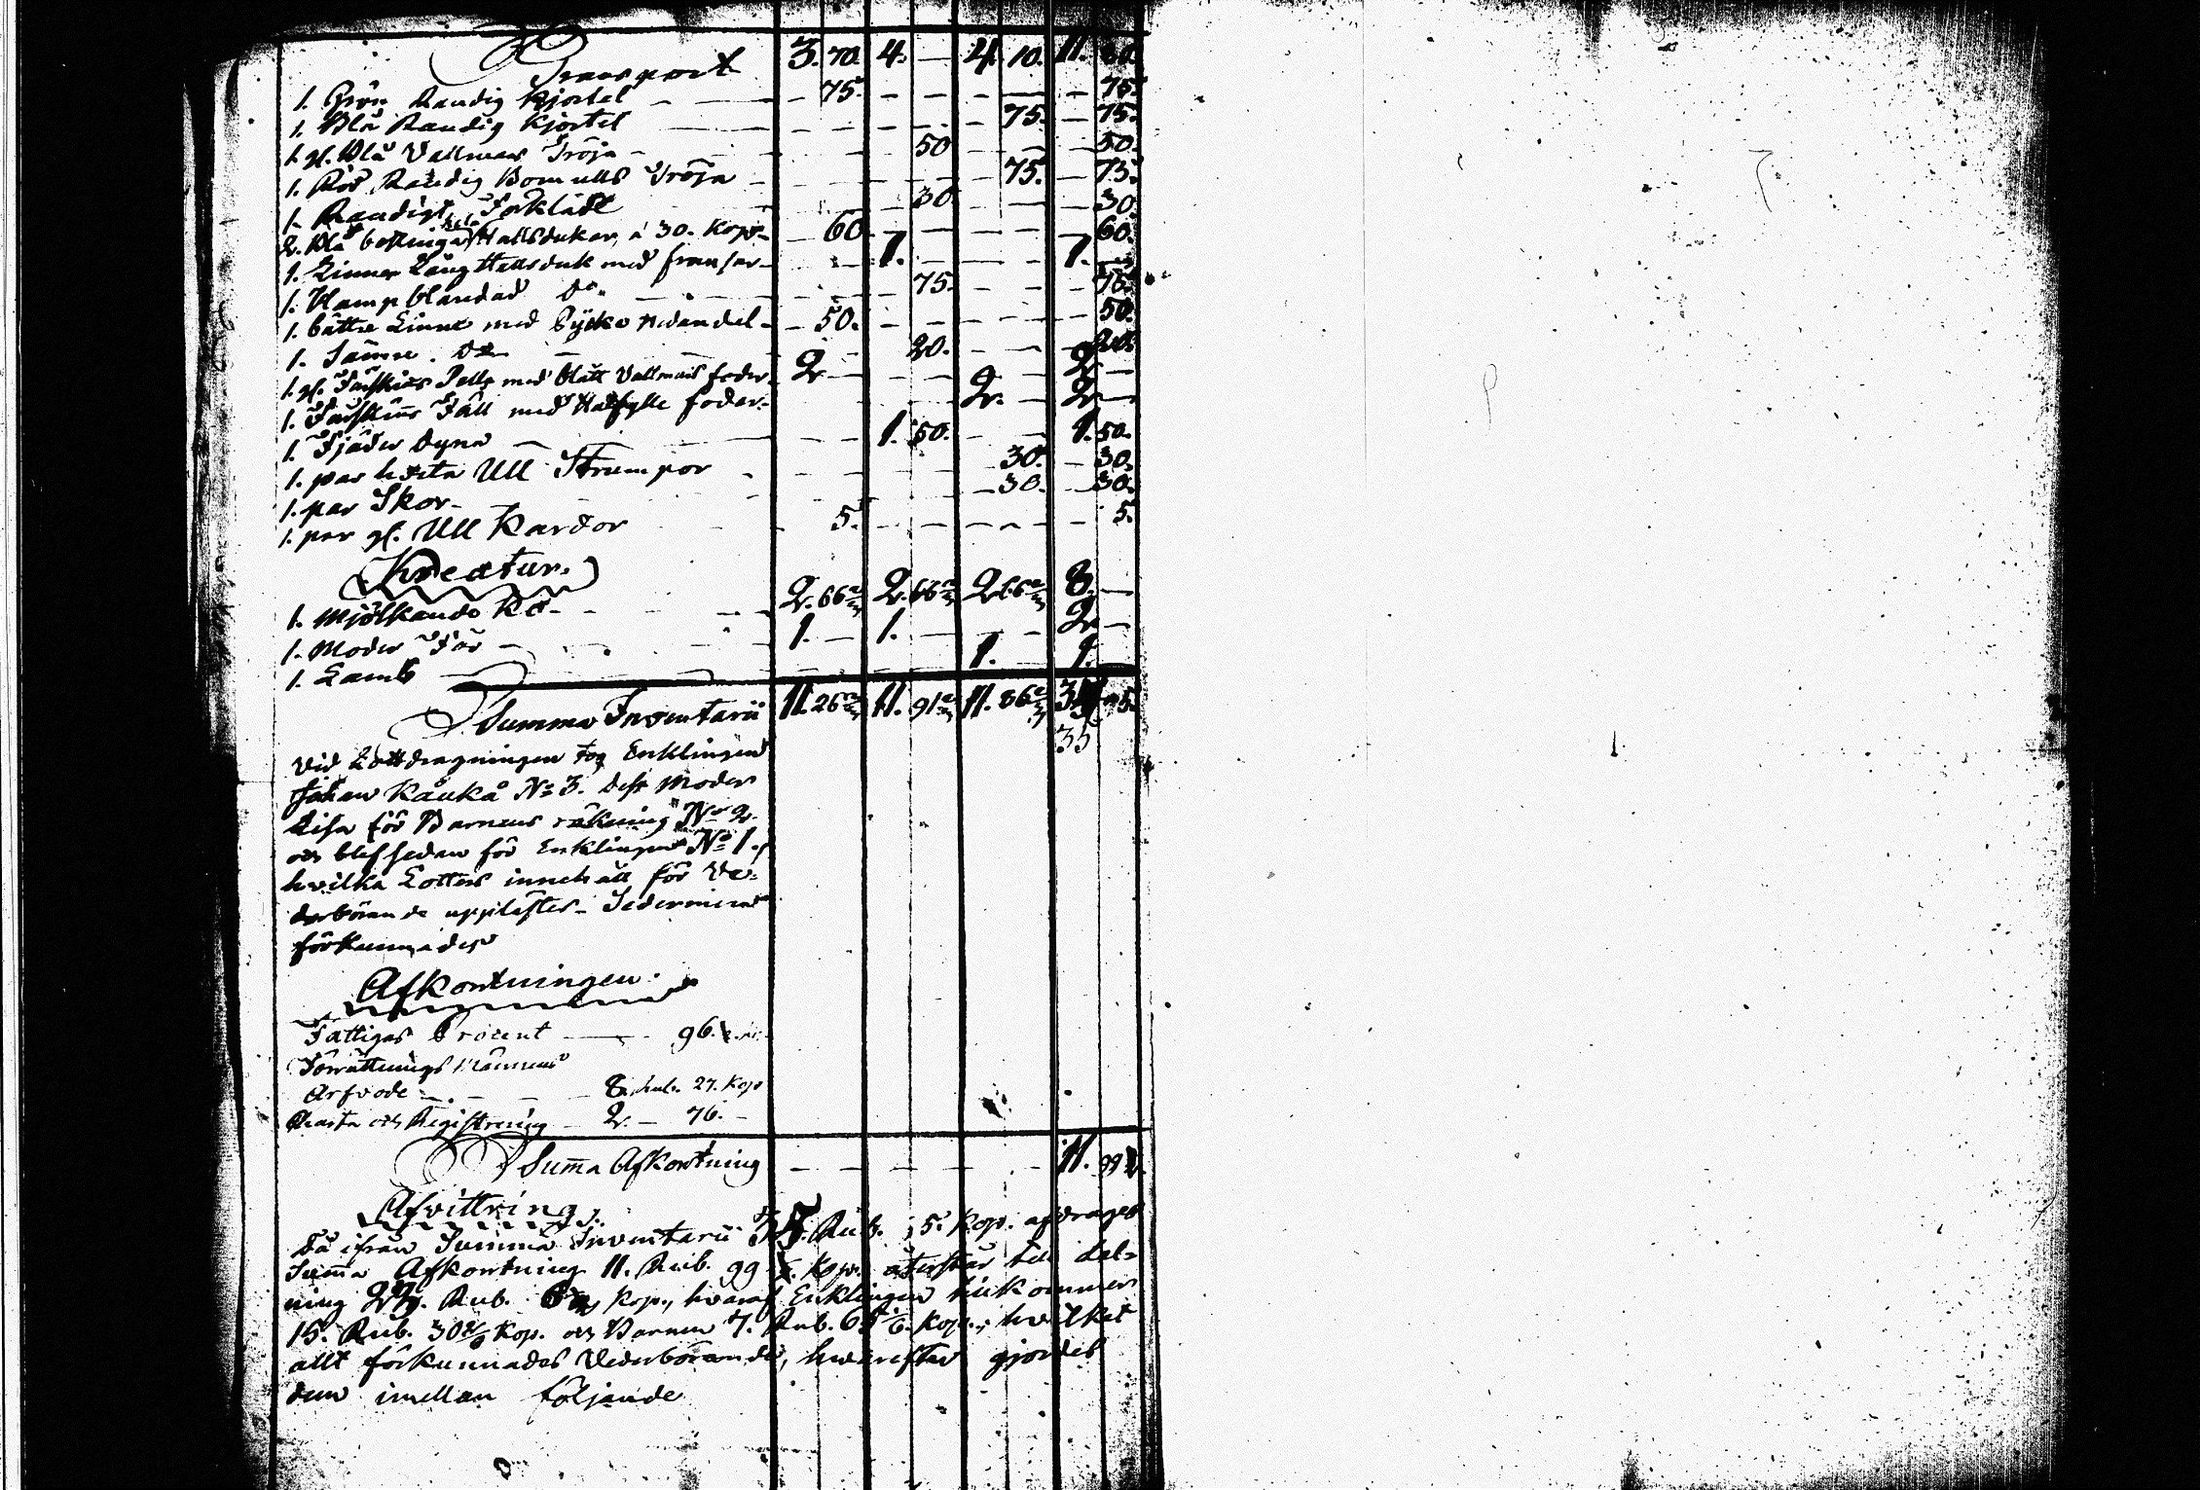 Transport 3. 70. 4. — 4. 10. 11. 80.
1. Grön Randig Kjortel — 75. — — — — 75.
1. Blå Randig Kjortel — — — — 75. — 75.
1. gl. Blå Vallmars Tröja — — — 50 — — — 50.
1. Röd Randig Bomulls Tröja — — — — 75. — 75.
1. Randigt Förkläde — — 30 — — — 30.
2. Blå Halsdukar, à 30. Kop. — 60 — — — — 60.
1. Linner Lång Halsduk med fransar — — — 1. — — — 1. —
1. Hampblandad Do. — — — 75. — — — 75.
1. bättre Linne med Nedandel — 50. — — — — 50.
1. Sämre Do — — 20. — — 20.
1. gl. Fårskins Pells med blått Vallmars foder 2 — — — — — 2 —
1. Fårskins Fäll med foder — — — 2. — 2. —
1. Fjäder Dyna — — — 1. 50. — — 1. 50.
1. par hvita Ull Strumpor — 30. — 30.
1. par Skor — — 30. — 30.
1. par gl. Ull Kardor 5. — — — — — 5.
Kreatur.
1. Mjölkande Ko — 2. 66 2/3 2. 66 2/3 2. 66 2/3 8. —
1. Moder Får — 1. — 1. — — 2 —
1. Lamb — 1. 1.
Summa Inventarii 11. 26 2/3 11. 91 2/3 11. 86 2/3 35 5.
35
Vid Lottdragningen tog Enklingen
Johan Kauka No 3. dess Moder
Lisa för Barnens räkning No 2.
och blef sedan för Enklingen No 1.,
hvilka Lotters innehåll för Ve-
derbörande upplästes.
förkunnades
Afkortningen.
Fattiges Procent — 96.
Förrättnings Männens
Arfvode — 8. Rub. 27. Kop
Charta och Registrering — 2. — 76. —
Summa Afkortning — — — — — 11. 99
Afvittring.
Då ifrån Summa Inventarii 35. Rub. 5. Kop. afdrages
Summa Afkortning 11. Rub. 99 Kop. återstår till del-
ning Rub. Kop., hvaraf Enklingen tillkommer
15. Rub. 30 Kop. och Barnen 7. Rub. 65 Kop.; hvilket
allt förkunnades Vederbörande, hvarefter gjordes
dem imellan följande